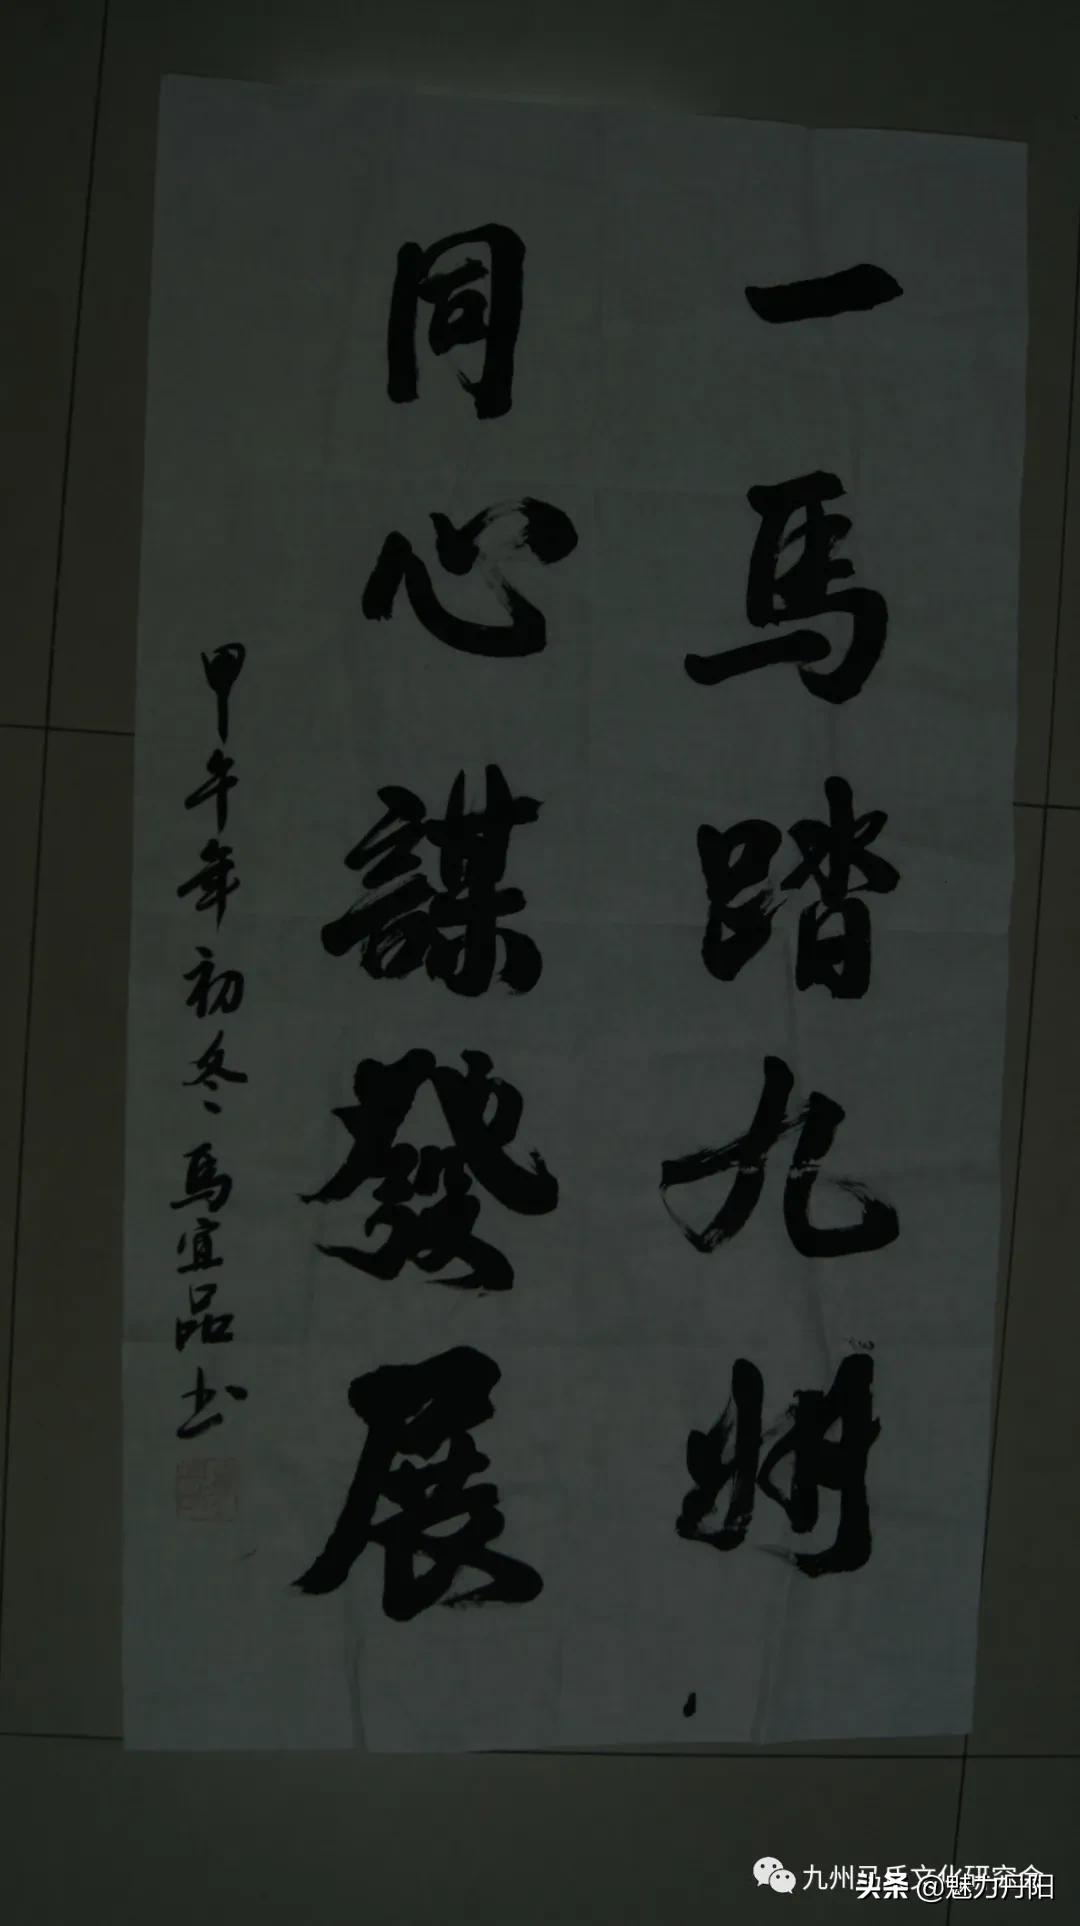 一馬踏九州
同心謀發展
甲午年初冬馬宜品书
九州马氏文化研究会
头条 @魅力丹阳